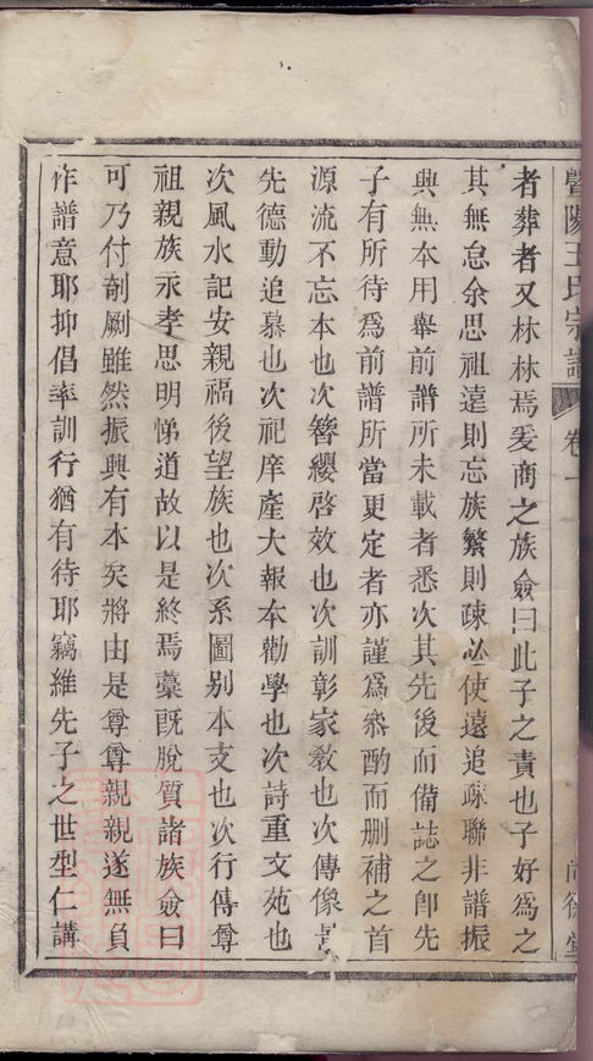 暨陽王氏宗譜 卷一
者葬者又林林焉爰商之族僉曰此子之責也子好爲之
其無怠余思祖遠則忘族繁則疎必使遠追疎聯非譜振
興無本用舉前譜所未載者悉次其先後而備誌之卽先
子有所待爲前譜所當更定者亦謹爲叅酌而删補之首
源流不忘本也次簪纓啓效也次訓彰家敎也次傳像
先德動追慕也次祀庠產大報本勸學也次詩重文苑也
次風水記安親福後望族也次系圖别本支也次行傳尊
祖親族永孝思明悌道故以是終焉藁旣脫質諸族僉曰
可乃付剞劂雖然振興有本矣將由是尊尊親親遂無負
作譜意耶抑倡率訓行猶有待耶竊維先子之世型仁講